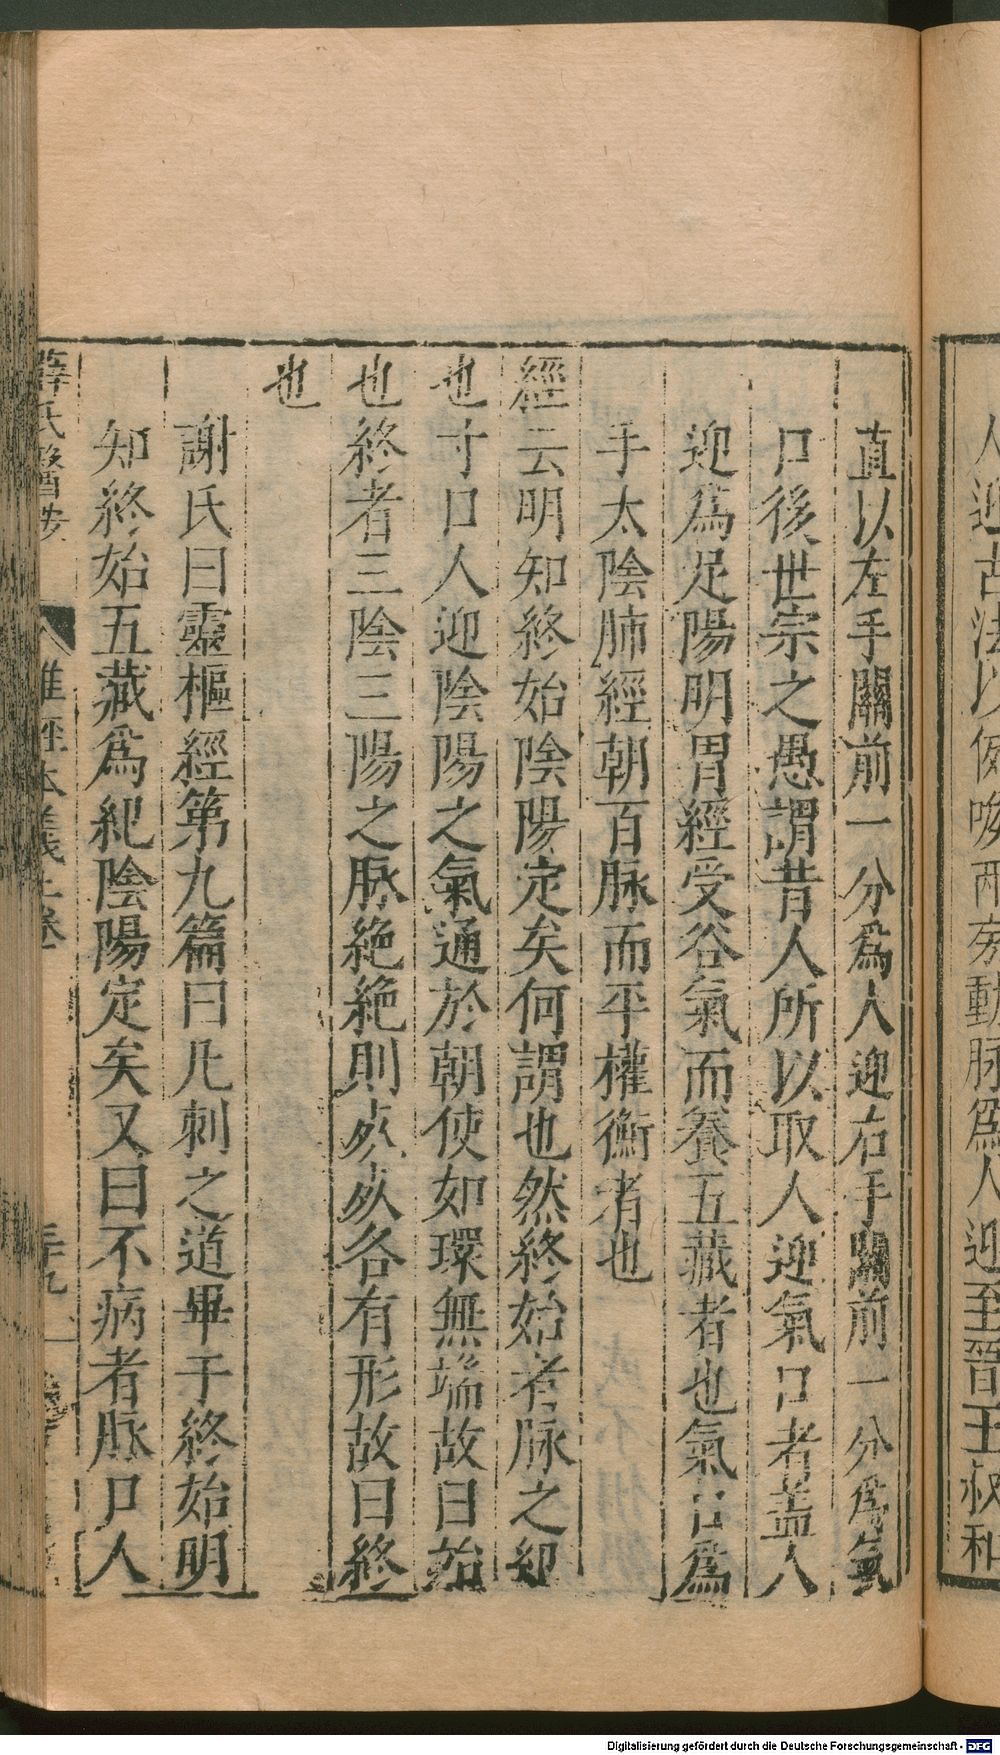 人迎古法以俠喉兩旁動脉爲人迎至晉王叔和
直以左手關前一分爲人迎右手關前一分爲氣
口後世宗之愚謂昔人所以取人迎氣口者盖人
迎爲足陽明胃經受谷氣而養五藏者也氣口爲
手太陰肺經朝百脉而平權衡者也
經云明知終始陰陽定矣何謂也然終始者脉之紀
也寸口人迎陰陽之氣通於朝使如環無端故曰始
也終者三陰三陽之脉絶絶則死死各有形故曰終
也
謝氏曰靈樞經第九篇曰凡刺之道畢于終始明
知終始五藏爲紀陰陽定矣又曰不病者脉口人
薛氏醫按 難經本義上卷
Digitalisierung gefördert durch die Deutsche Forschungsgemeinschaft - DFG